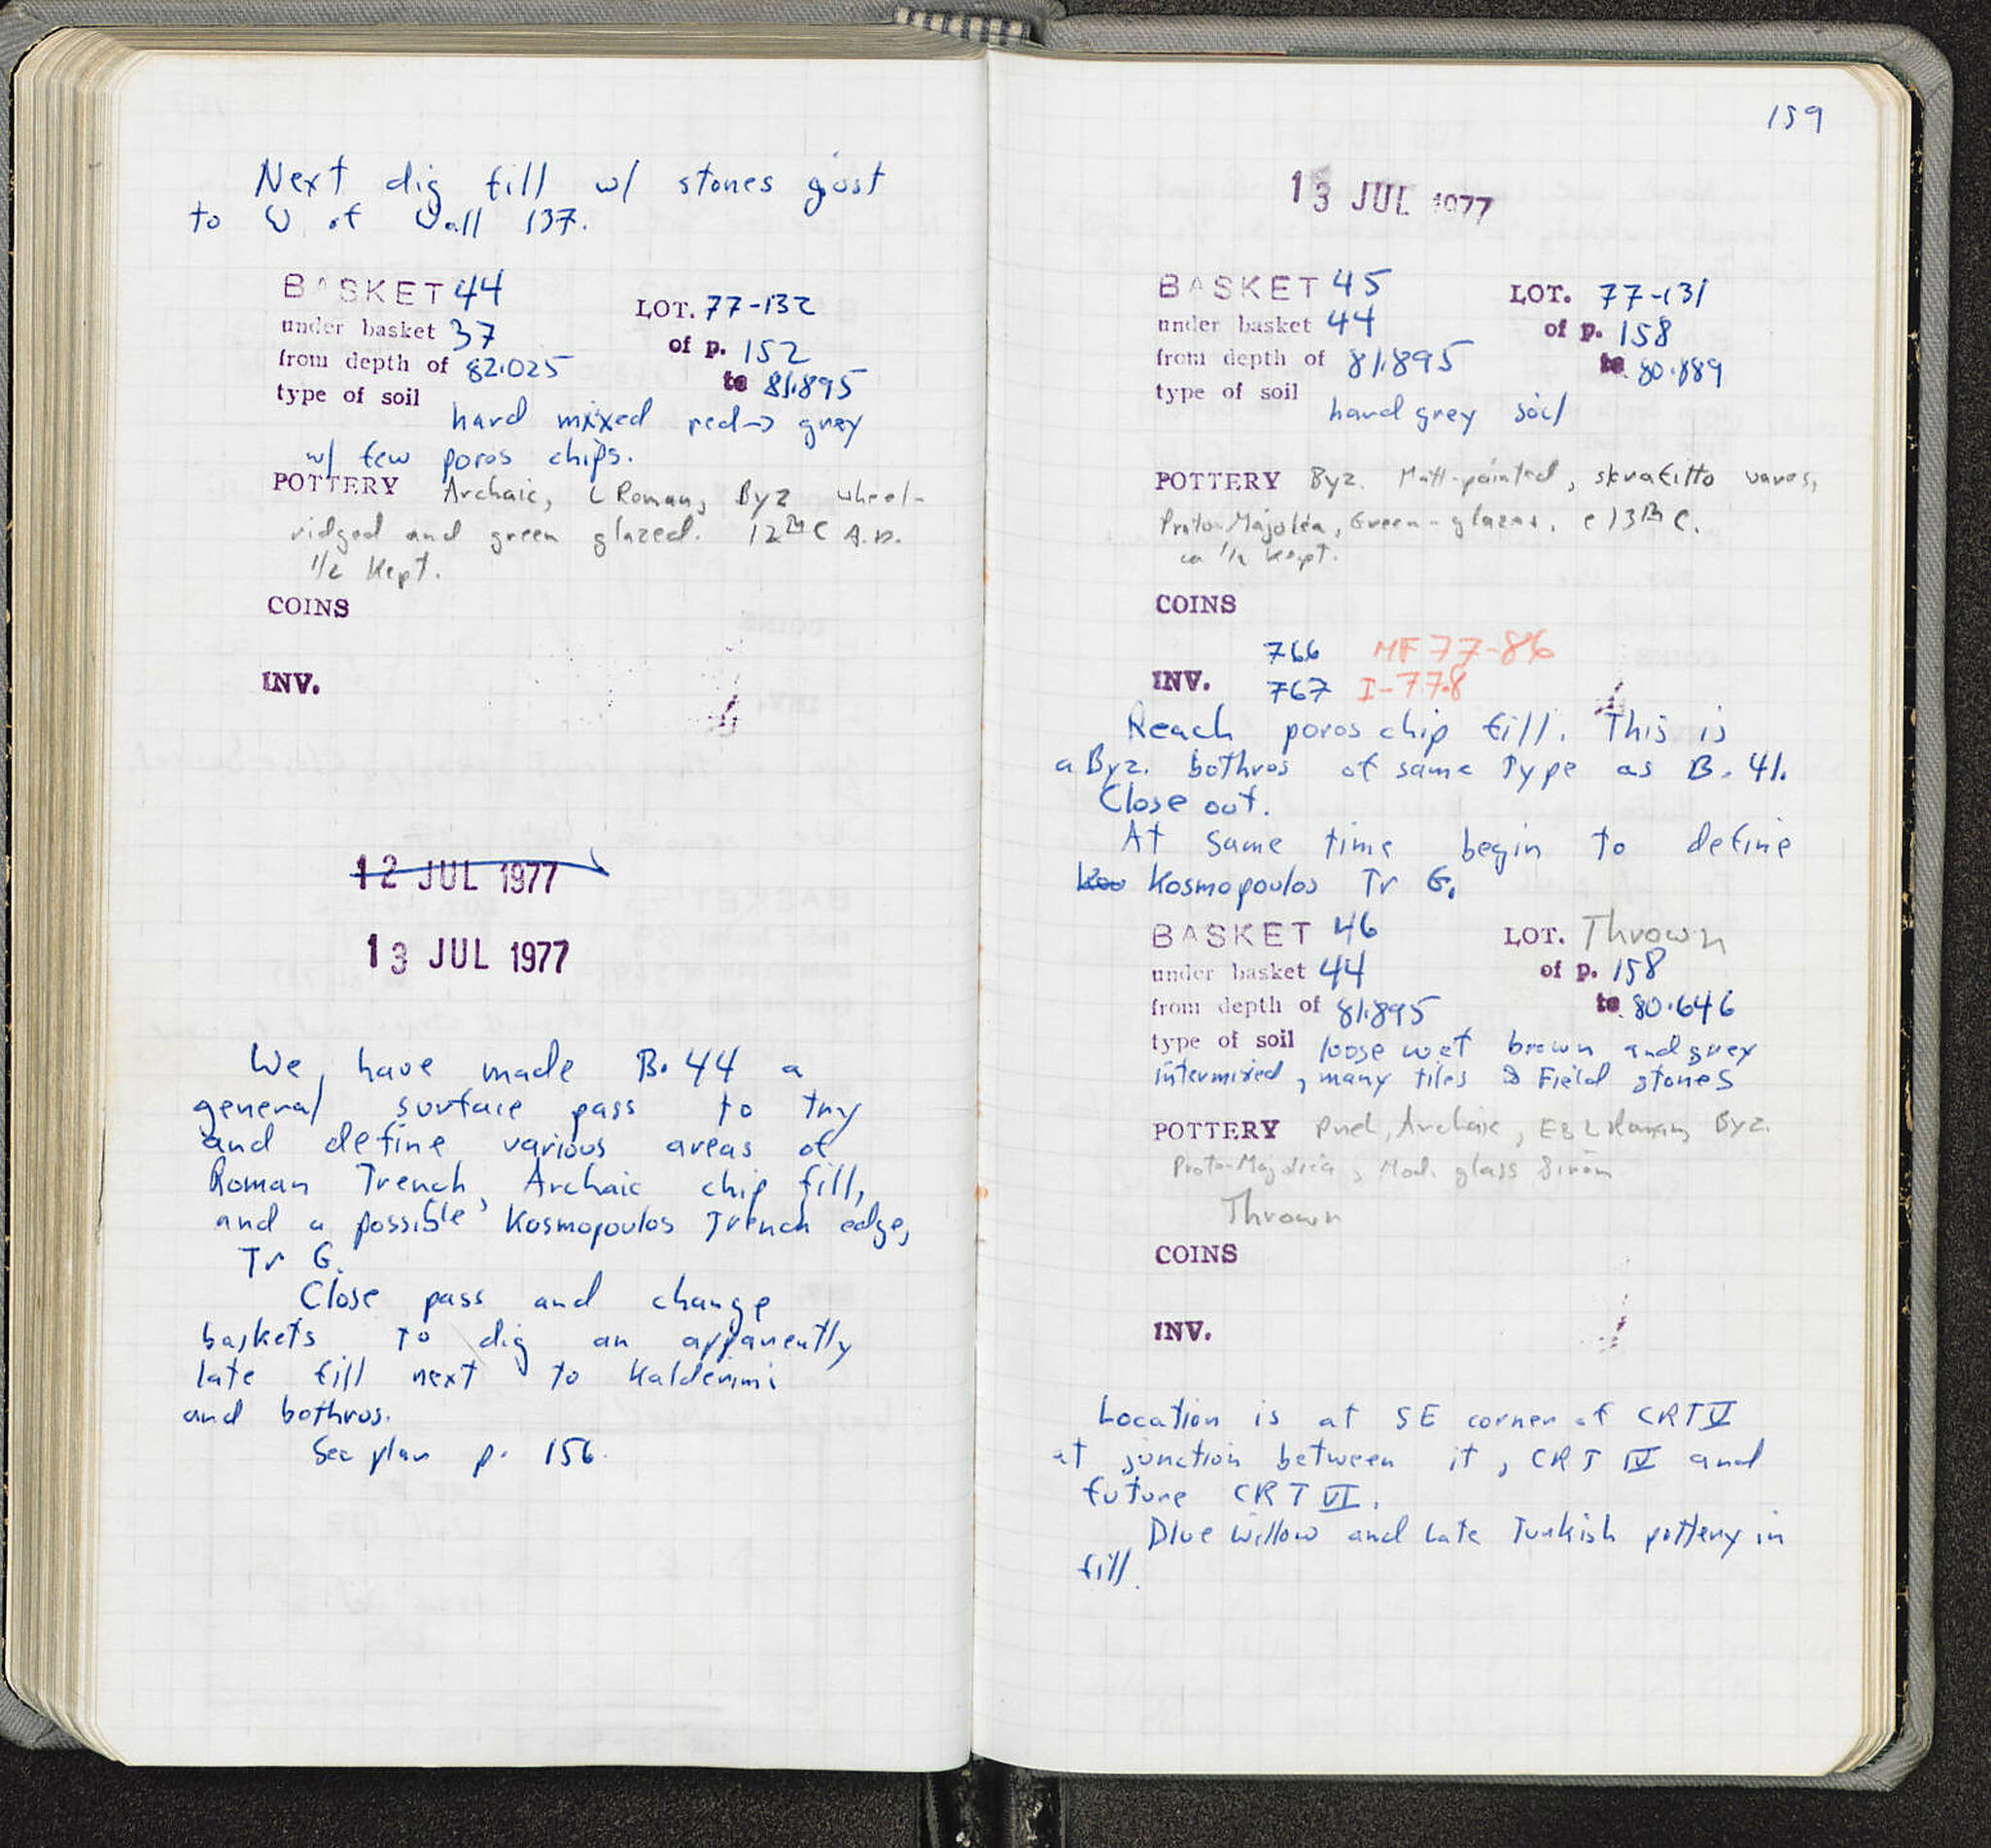 Next dig fill w/ stones just
to W of Wall 137.
BASKET 44
LOT. 77-132
under basket 37
of p. 152
from depth of 82.025
to 81.895
type of soil
hard mixed red → grey
w/ few poros chips.
POTTERY Archaic, L Roman, Byz wheel-
ridged and green glazed. 12th C A.D.
1/2 kept.
COINS
INV.
12 JUL 1977
13 JUL 1977
We have made B. 44 a
general surface pass to try
and define various areas of
Roman Trench, Archaic chip fill,
and a possible Kosmopoulos Trench edge,
Tr G.
Close pass and change
baskets to dig an apparently
late fill next to Kalderimi
and bothros.
See plan p. 156.
159
13 JUL 1977
BASKET 45
LOT. 77-131
under basket 44
of p. 158
from depth of 81.895
to 80.889
type of soil
hard grey soil
POTTERY Byz. Matt-painted, skrafitto wares,
Proto-Majolica, Green-glazes. c 13th C.
ca 1/2 kept.
COINS
766 MF 77-86
INV. 767 I-77-8
Reach poros chip fill. This is
a Byz. bothros of same type as B. 41.
Close out.
At same time begin to define
Kosmopoulos Tr G.
BASKET 46
LOT. Thrown
under basket 44
of p. 158
from depth of 81.895
to 80.646
type of soil loose wet brown and grey
intermixed, many tiles & Field stones
POTTERY Pred, Archaic, E & L Roman, Byz.
Proto-Majolica, Mod. glass & iron
Thrown
COINS
INV.
Location is at SE corner of CRT V
at junction between it, CRT IV and
future CRT VI.
Blue Willow and Late Turkish pottery in
fill.